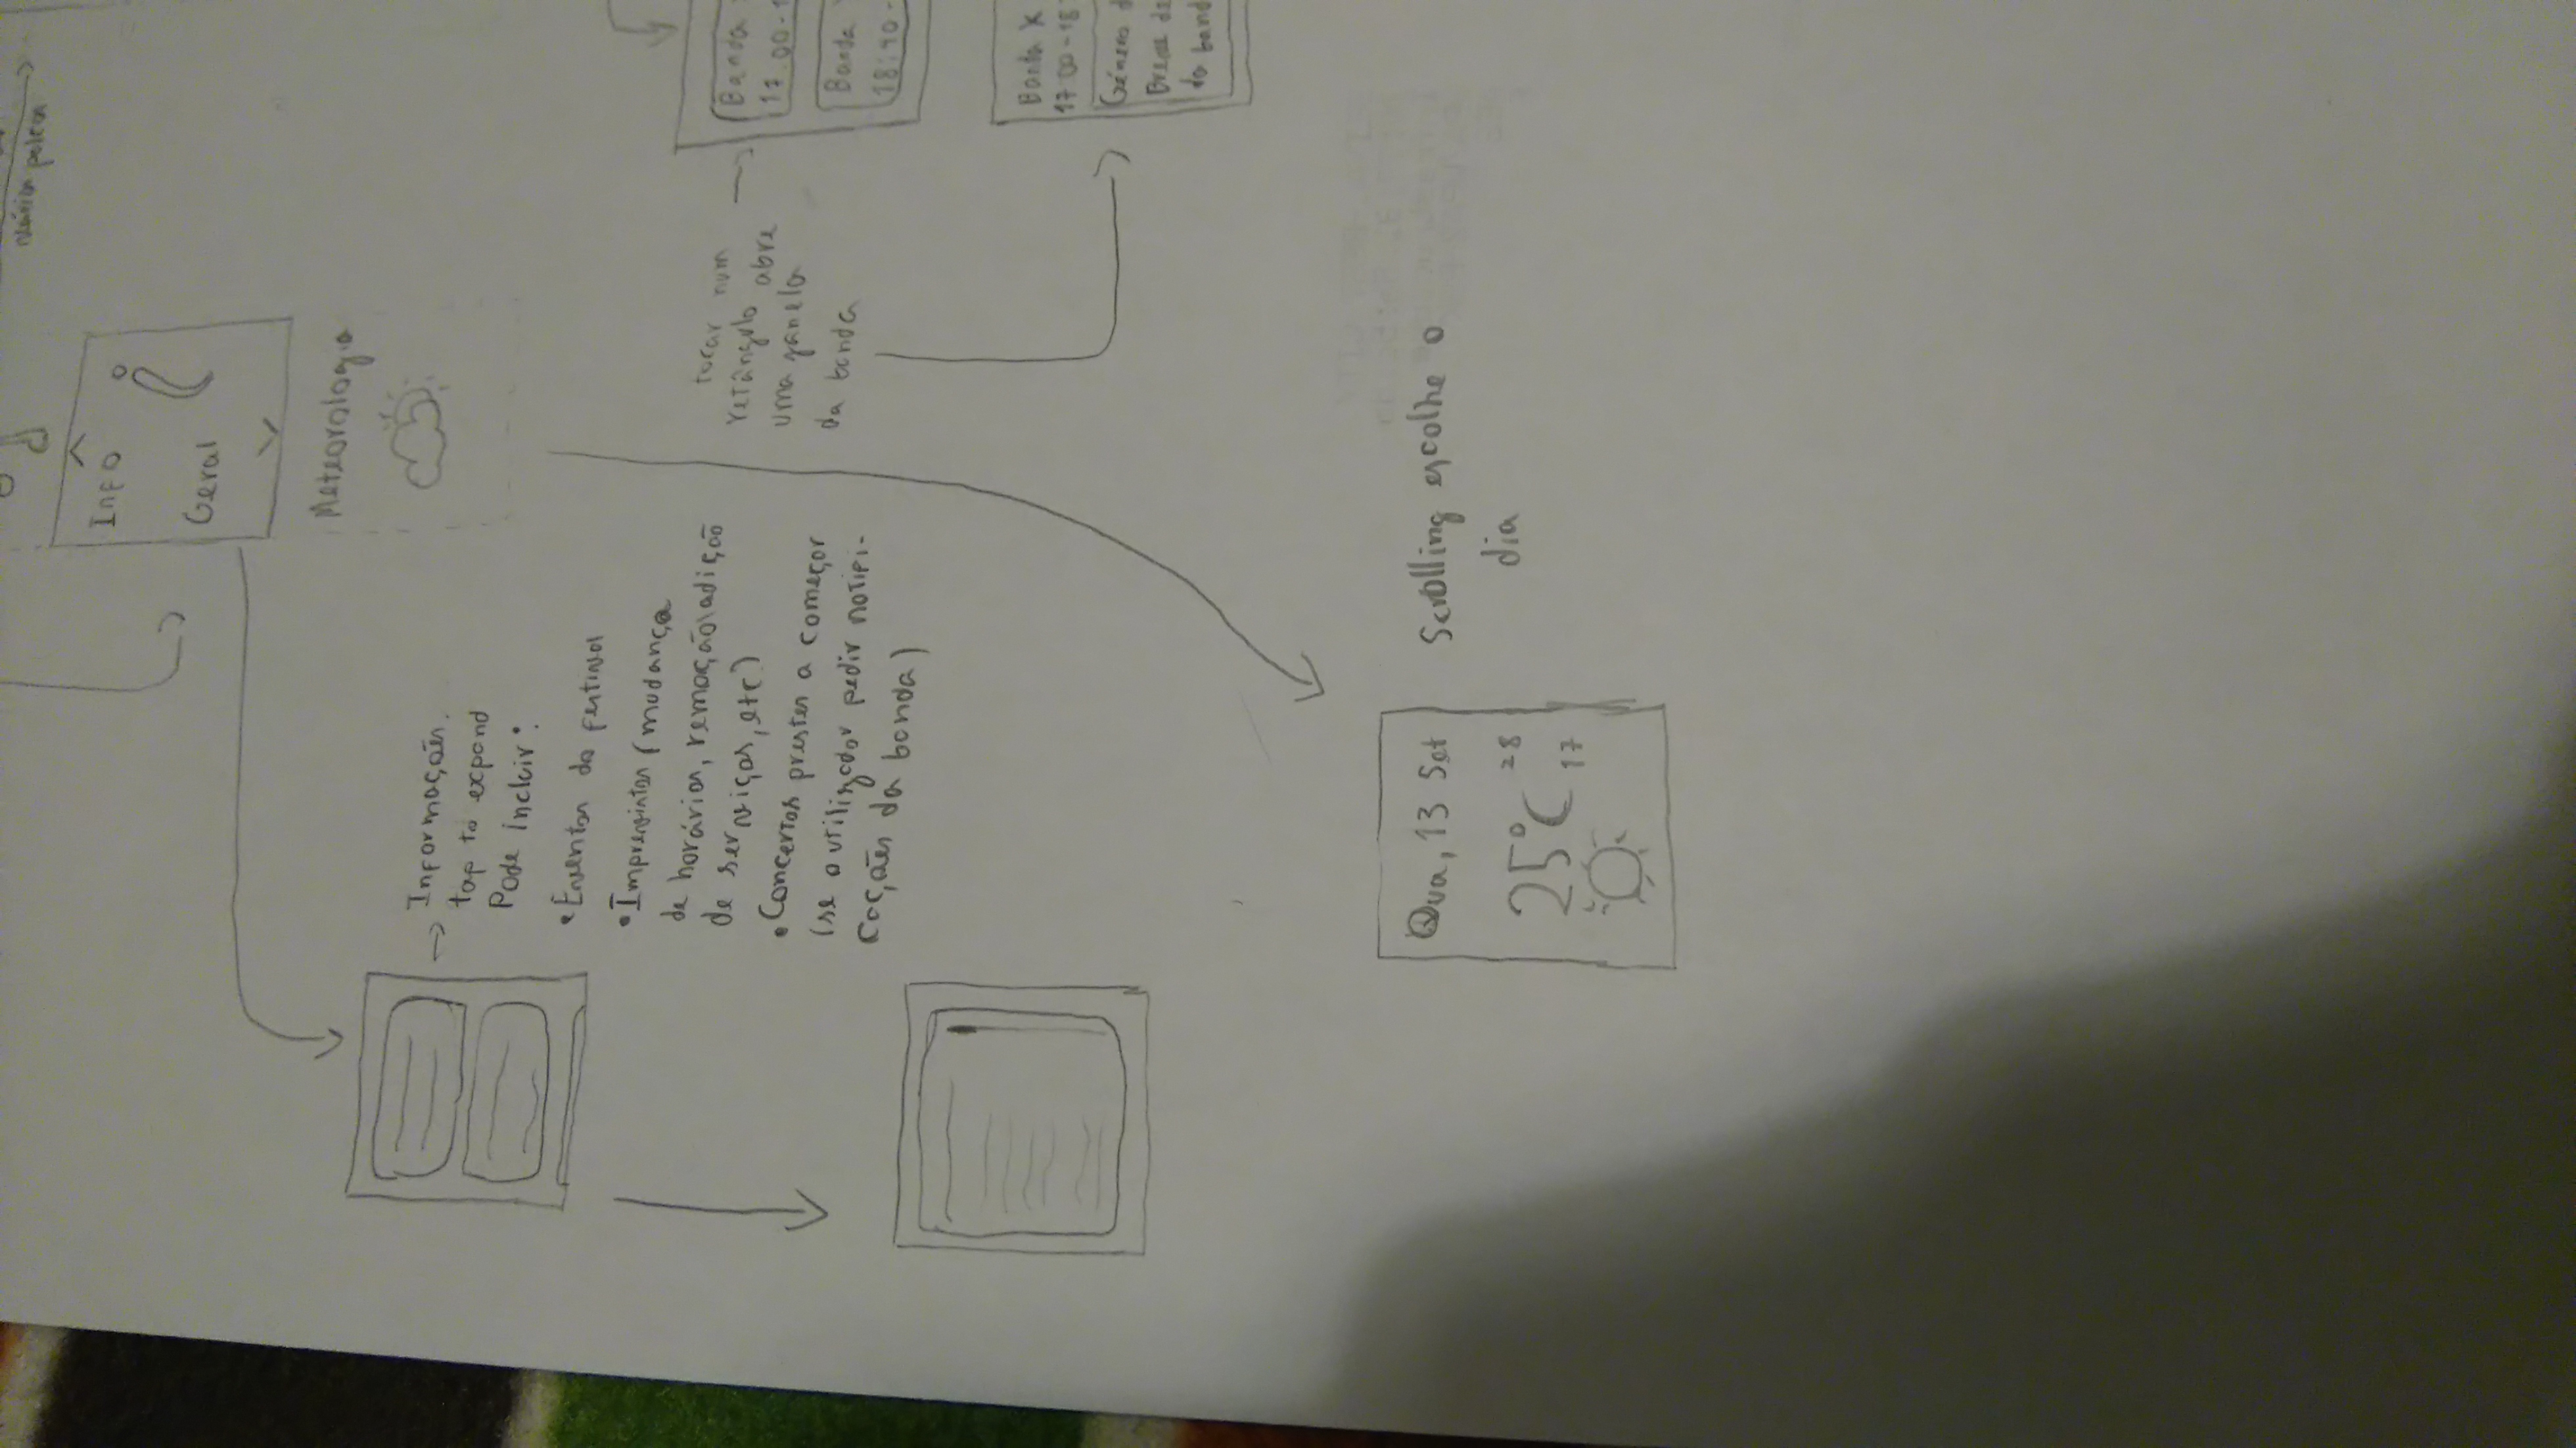 Info
Geral
Meteorologia
Informações.
tap to expand
Pode incluir:
• Eventos do festival
• Imprevistos (mudança
de horários, remoção\adição
de serviços, etc)
• Concertos prestes a começar
(se o utilizador pedir notifi-
cações da banda)
tocar num
retângulo abre
uma janela
da banda
Banda
17:00-1
Banda
18:40-
Banda X
17:00-18
Género d
Breve de
da band
Qua, 13 Set
25°C
28
17
Scrolling escolhe o
dia